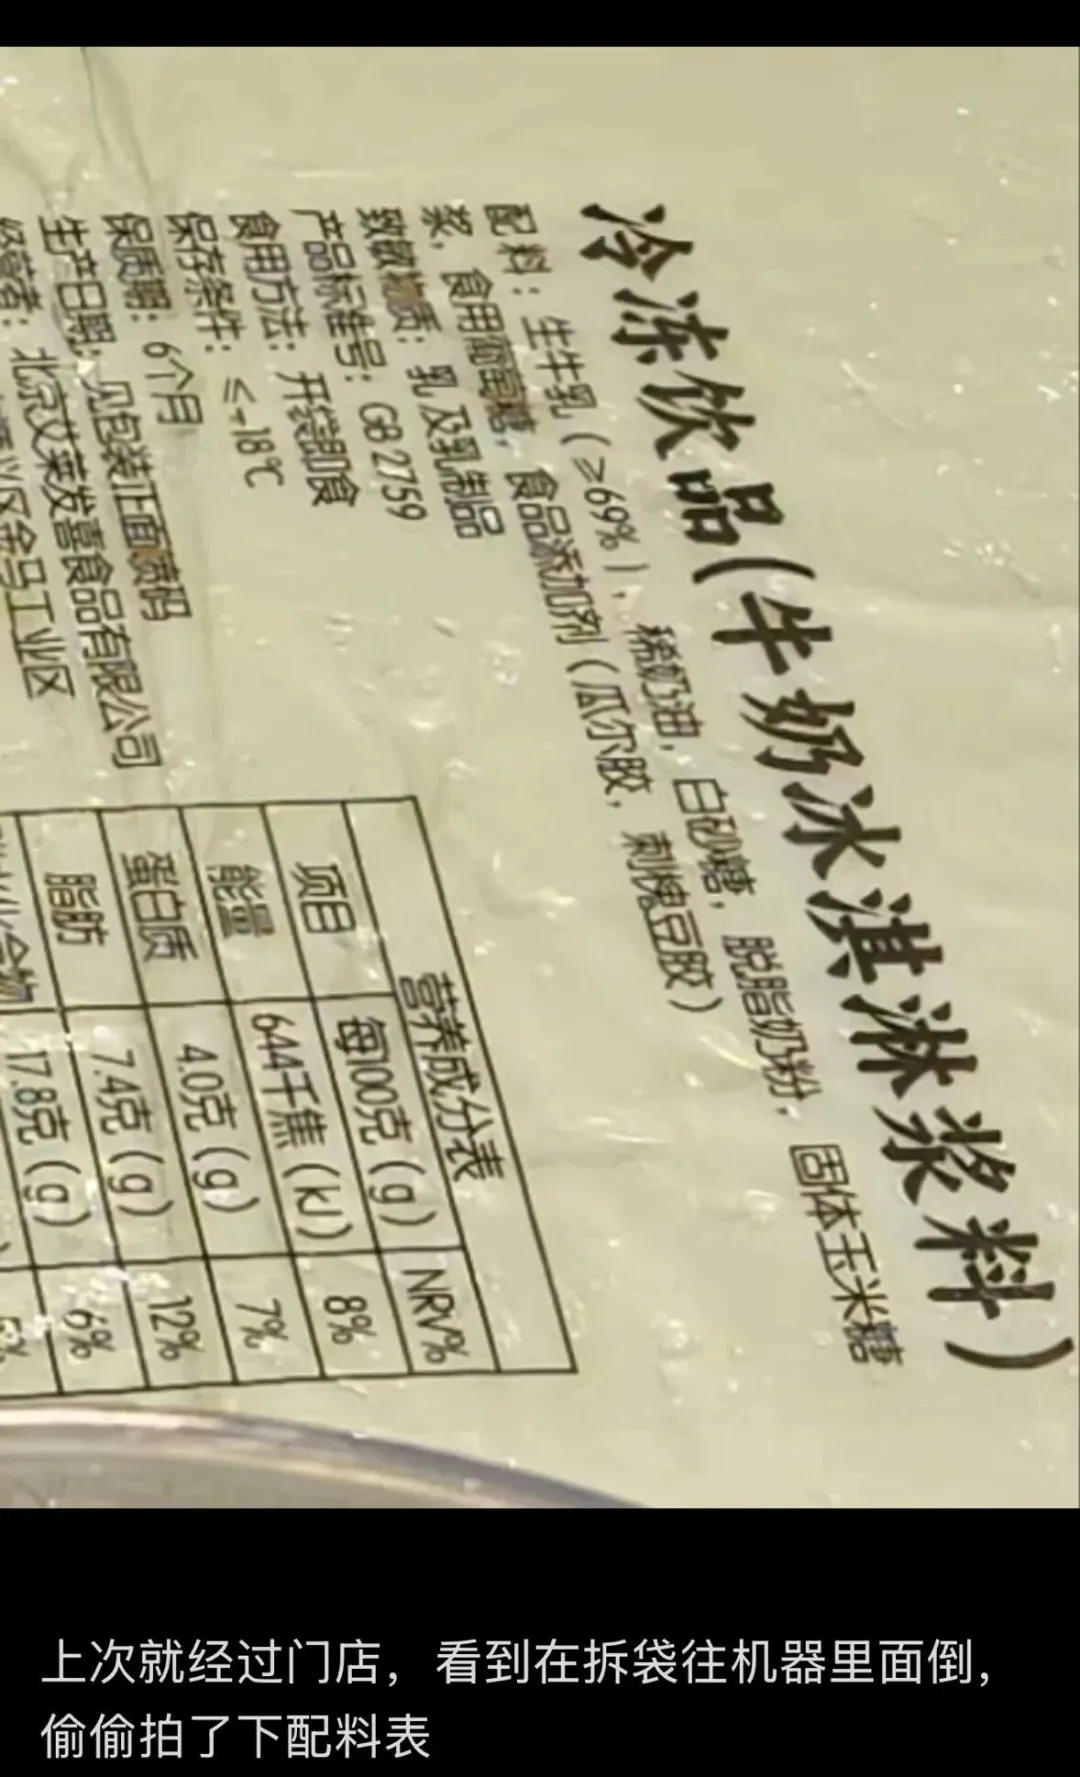 冷冻饮品(牛奶冰淇淋浆料)
配料：生牛乳（≥69%），稀奶油，白砂糖，脱脂奶粉，固体玉米糖
浆，食用葡萄糖，食品添加剂（瓜尔胶，刺槐豆胶）
致敏物质：乳及乳制品
产品标准号：GB 2759
食用方法：开袋即食
保存条件：≤-18℃
保质期：6个月
生产日期：见包装正面喷码
经营者：北京艾莱发喜食品有限公司
区金马工业区
营养成分表
项目 每100克(g) NRV%
能量 644千焦(kJ) 8%
蛋白质 4.0克(g) 7%
脂肪 7.4克(g) 12%
化合物 17.8克(g) 6%
5%
上次就经过门店，看到在拆袋往机器里面倒，
偷偷拍了下配料表